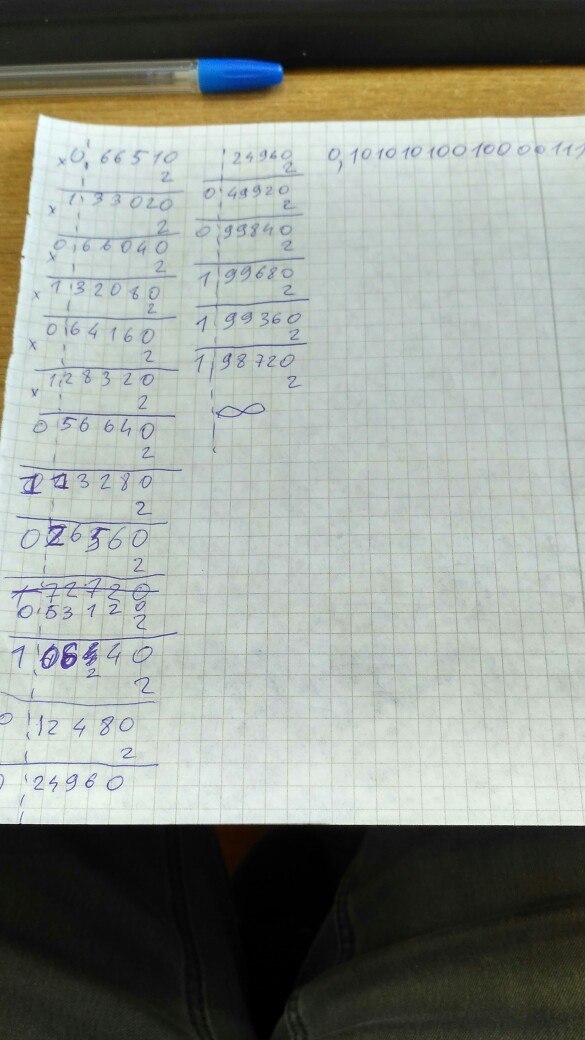 × 0, 66510
2
× 1 33020
2
× 0 66040
2
× 1 32080
2
× 0 64160
2
× 1 28320
2
0 56640
2
1 13280
2
0 26560
2
1 72720
0 53120
2
1 06240
2
0 12480
2
0 24960
24960
2
0 49920
2
0 99840
2
1 99680
2
1 99360
2
1 98720
2
∞
0,1010101001000011